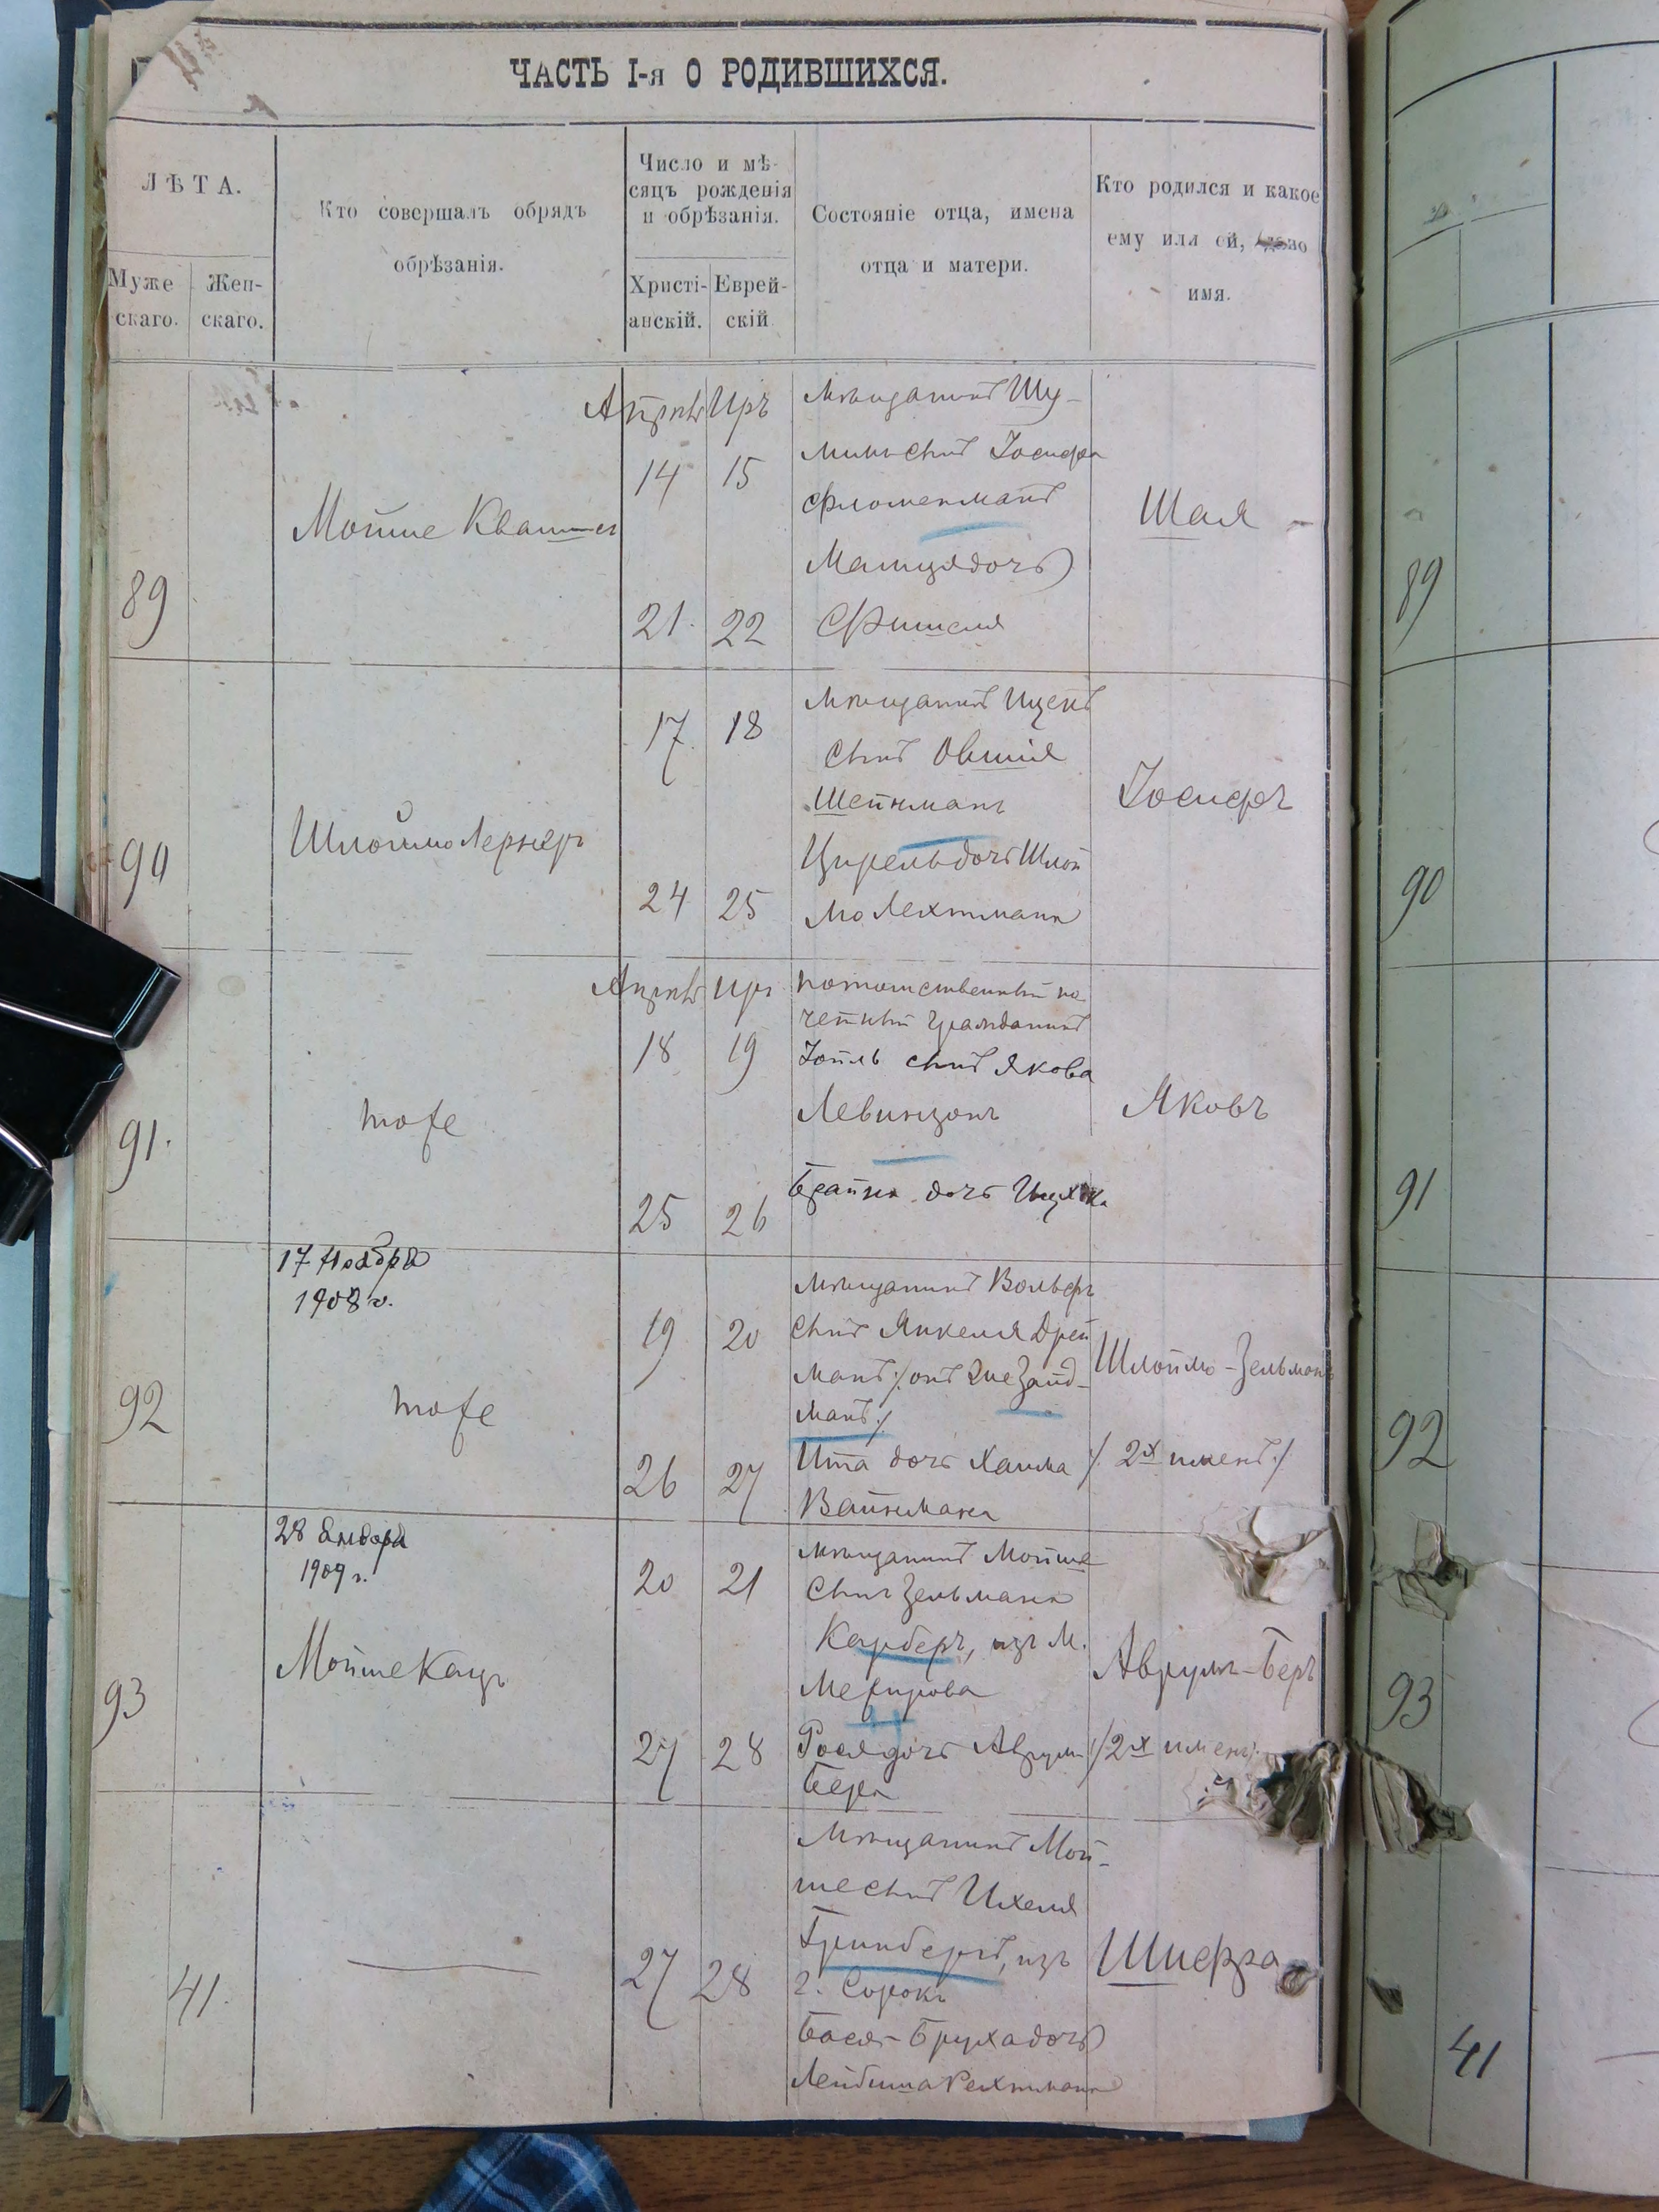 ЧАСТЬ I-я О РОДИВШИХСЯ.
ЛѢТА.
Муже
скаго.
Жен-
скаго.
Кто совершалъ обрядъ
обрѣзанія.
Число и мѣ-
сяцъ рожденія
и обрѣзанія.
Христі-
анскій.
Еврей-
скій
Состояніе отца, имена
отца и матери.
Кто родился и какое
ему или ей, дано
имя.
89
Мойше Квашнег
Апрѣль Иръ
14 15
21. 22
Мѣщанинъ Шу-
сынъ Іосифа
Фломенманъ
дочь
Фишеля
Шая
89
90
Шлоймо Лернеръ
17 18
24 25
Мѣщанинъ Ицекъ
сынъ Овшія
Шейнманъ
Цирель дочь Шлой
мо Лехтмана
Іосифъ
90
91.
тоже
Апрѣль Иръ
18 19
25 26
Потомственный по
четный гражданинъ
Іойль сынъ Якова
Левинзонъ
Брайна дочь Ицхока
Яковъ
91
17 Ноября
1908 г.
92
тоже
19 20
26 27
Мѣщанинъ Вольфъ
сынъ Янкеля Дрей
манъ /:онъ же Зайд-
манъ:/
Ита дочь Хаима
Вайнмана
Шлоймо-Зельманъ
/: 2х именъ:/
92
28 Января
1909 г.
93
Мойше Кацъ
20 21
27 28
Мѣщанинъ Мойше
сынъ Зельмана
Карберъ, изъ М.
Рося дочь Аврум
Бера
Аврумъ-Беръ
/:2х именъ:/
93
41.
27 28
Мѣщанинъ Мой-
ше сынъ Ихеля
Гринбергъ, изъ
г. Сорокъ
Бася-Бруха дочь
Лейбиша Рехтмана
Шифра
41